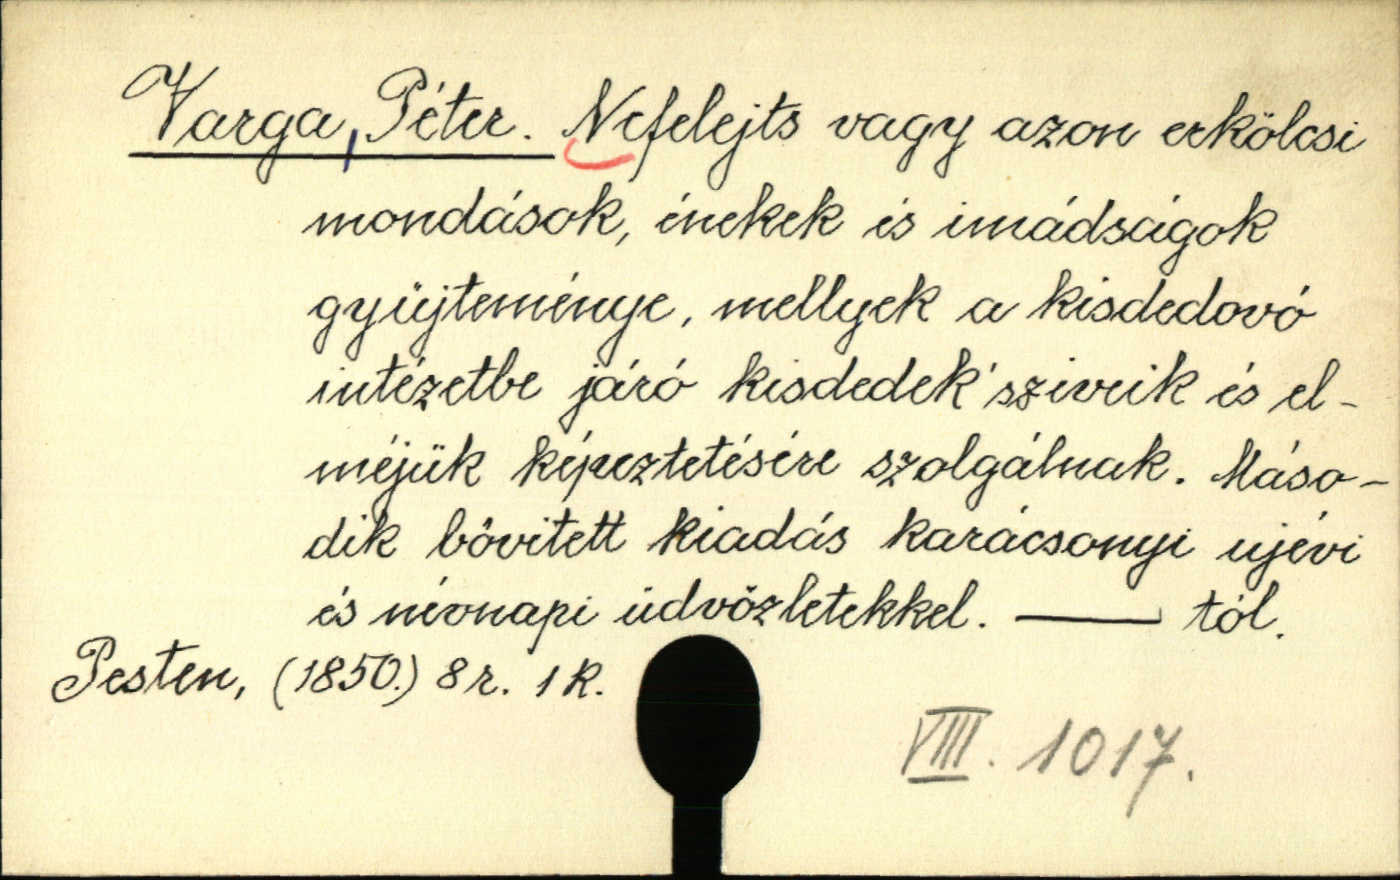 Varga, Péter. Nefelejts vagy azon erkölcsi
mondások, énekek és imádságok
gyüjteménye, mellyek a kisdedovó
intézetbe járó kisdedek' sziveik és el-
méjük képeztetésére szolgálnak. Máso-
dik bővitett kiadás karácsonyi ujévi
és névnapi üdvözletekkel. —— tól.
Pesten, (1850.) 8 r. 1 k.
VIII. 1017.